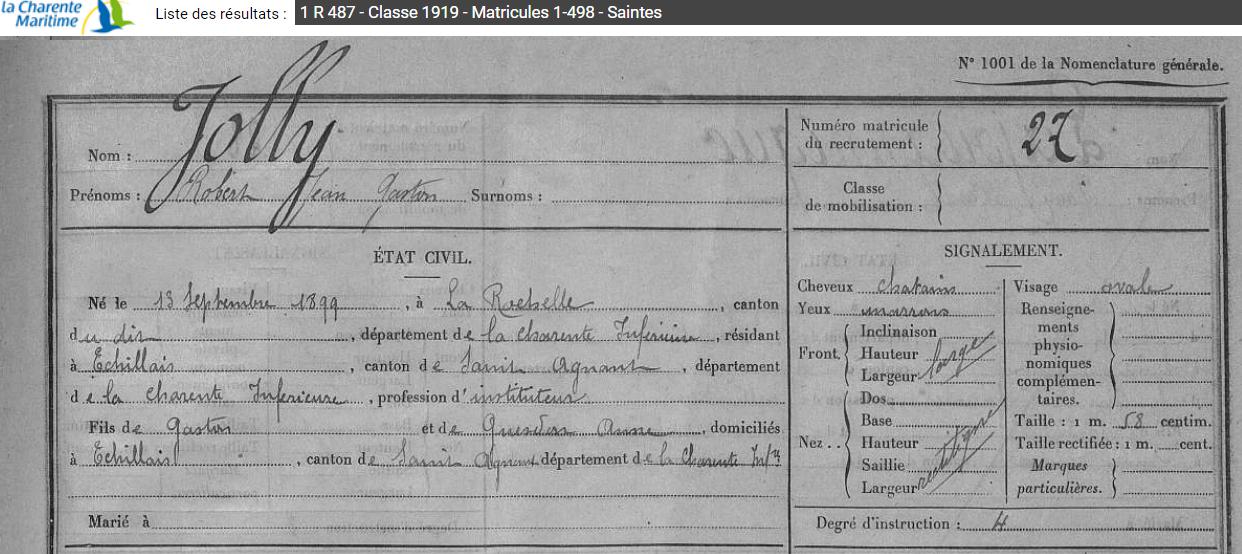 la Charente
Maritime
Liste des résultats : 1 R 487 - Classe 1919 - Matricules 1-498 - Saintes
N° 1001 de la Nomenclature générale.
Nom : Jolly
Prénoms : Robert Jean Gaston Surnoms :
Numéro matricule
du recrutement : 27
Classe
de mobilisation :
ÉTAT CIVIL.
Né le 13 Septembre 1899, à La Rochelle, canton
du dit, département de la Charente Inférieure, résidant
à Echillais, canton de Saint Agnant, département
de la Charente Inferieure, profession d'instituteur
Fils de Gaston et de Anna, domiciliés
à Echillais, canton de Saint Agnant département de la Charente Infre
Marié à
SIGNALEMENT.
Cheveux chatains Visage ovale
Yeux marrons
Front. Inclinaison
Hauteur
Largeur large
Nez.. Dos
Base
Hauteur
Saillie
Largeur rectiligne
Renseigne-
ments
physio-
nomiques
complémen-
taires.
Taille : 1 m. 58 centim.
Taille rectifiée : 1 m. cent.
Marques
particulières.
Degré d'instruction : 4